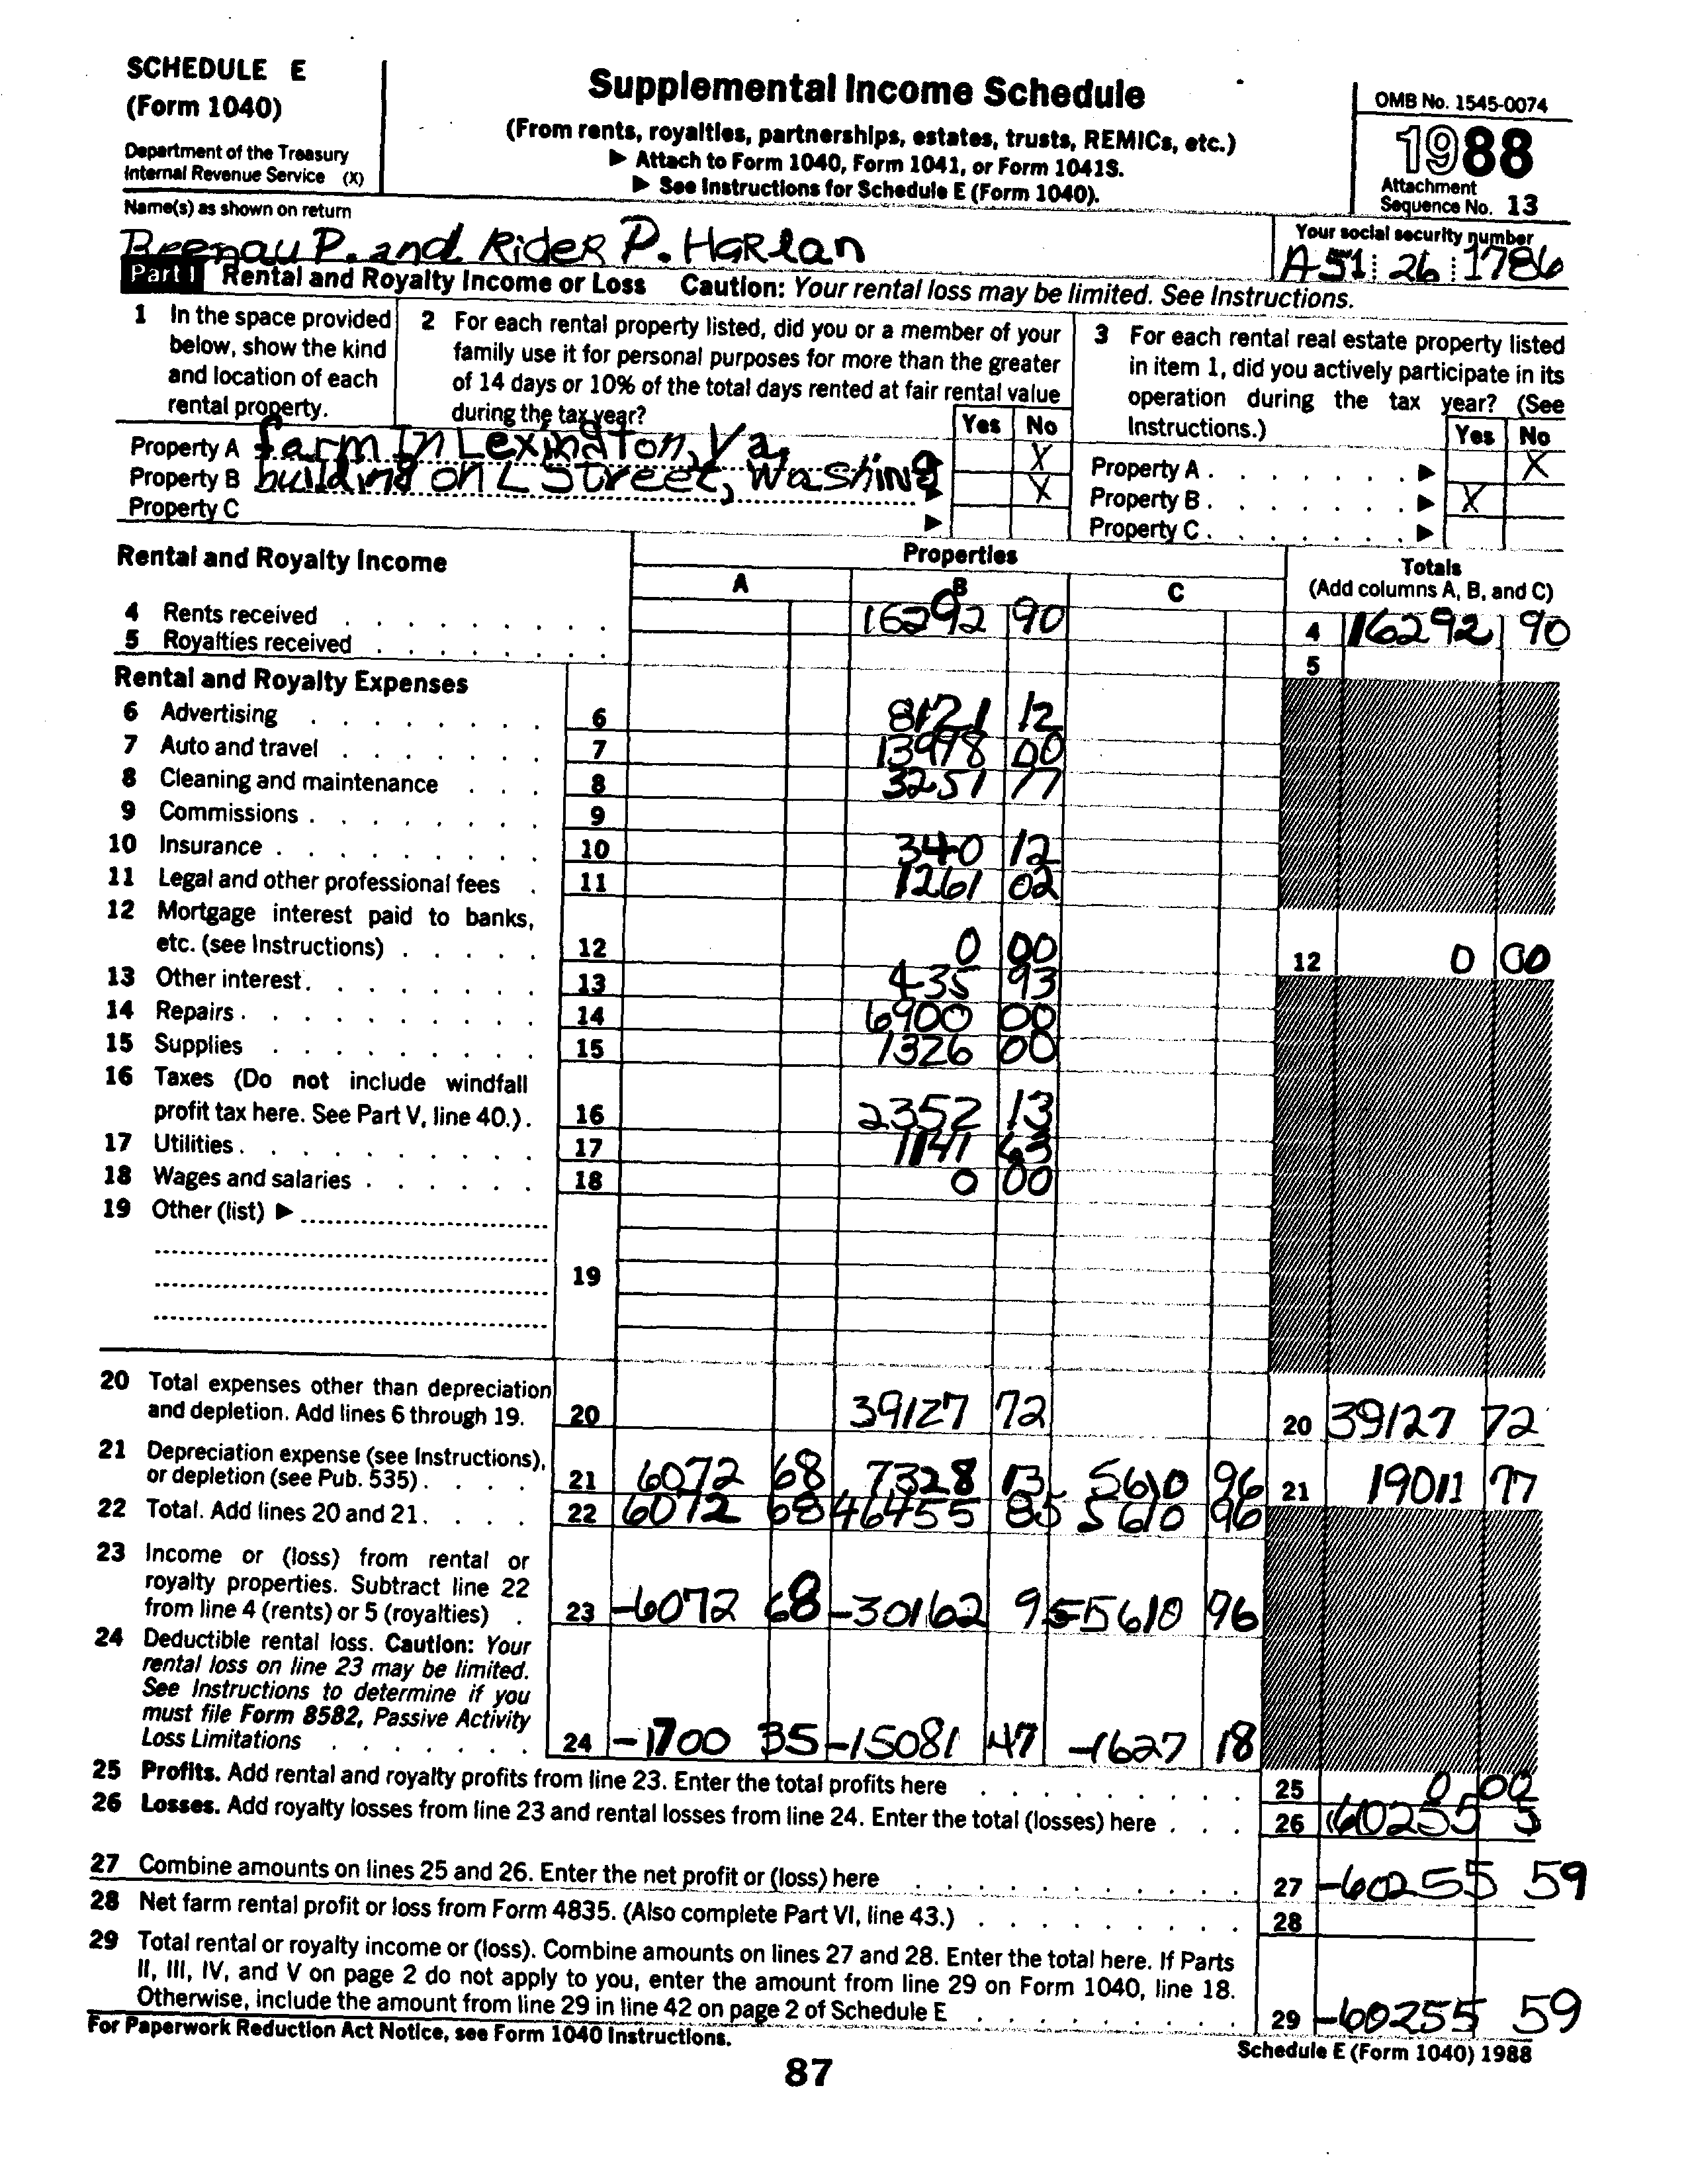 SCHEDULE E
(Form 1040)
Department of the Treasury
Internal Revenue Service (X)
Supplemental Income Schedule
(From rents, royalties, partnerships, estates, trusts, REMICs, etc.)
▶ Attach to Form 1040, Form 1041, or Form 1041S.
▶ See Instructions for Schedule E (Form 1040).
OMB No. 1545-0074
1988
Attachment
Sequence No. 13
Name(s) as shown on return
Beenau P. and Rider P. Harlan
Your social security number
A51 26 1786
Part I Rental and Royalty Income or Loss Caution: Your rental loss may be limited. See Instructions.
1 In the space provided
below, show the kind
and location of each
rental property.
2 For each rental property listed, did you or a member of your
family use it for personal purposes for more than the greater
of 14 days or 10% of the total days rented at fair rental value
during the tax year?
Yes No
3 For each rental real estate property listed
in item 1, did you actively participate in its
operation during the tax year? (See
Instructions.)
Yes No
Property A farm In Lexington, Va, X
Property B building on L Street, Washing X
Property C ▶
Property A . . . . . . . ▶ X
Property B . . . . . . . ▶ X
Property C . . . . . . . ▶
Rental and Royalty Income
Properties
A B C
Totals
(Add columns A, B, and C)
4 Rents received 16292 90 4 16292 90
5 Royalties received 5
Rental and Royalty Expenses
6 Advertising 6 8121 12
7 Auto and travel 7 13998 00
8 Cleaning and maintenance 8 3251 77
9 Commissions 9
10 Insurance 10 340 12
11 Legal and other professional fees 11 1261 02
12 Mortgage interest paid to banks,
etc. (see Instructions) 12 0 00 12 0 00
13 Other interest 13 435 93
14 Repairs 14 6900 00
15 Supplies 15 1326 00
16 Taxes (Do not include windfall
profit tax here. See Part V, line 40.) 16 2352 13
17 Utilities 17 1141 63
18 Wages and salaries 18 0 00
19 Other (list) ▶
19
20 Total expenses other than depreciation
and depletion. Add lines 6 through 19. 20 39127 72 20 39127 72
21 Depreciation expense (see Instructions),
or depletion (see Pub. 535) 21 6072 68 7328 13 5610 96 21 19011 77
22 Total. Add lines 20 and 21 22 6072 68 46455 85 5610 96
23 Income or (loss) from rental or
royalty properties. Subtract line 22
from line 4 (rents) or 5 (royalties) 23 -6072 68 -30162 95 -5610 96
24 Deductible rental loss. Caution: Your
rental loss on line 23 may be limited.
See Instructions to determine if you
must file Form 8582, Passive Activity
Loss Limitations 24 -1700 35 -15081 47 -1627 18
25 Profits. Add rental and royalty profits from line 23. Enter the total profits here 25 0 00
26 Losses. Add royalty losses from line 23 and rental losses from line 24. Enter the total (losses) here 26 (60255 5
27 Combine amounts on lines 25 and 26. Enter the net profit or (loss) here 27 -60255 59
28 Net farm rental profit or loss from Form 4835. (Also complete Part VI, line 43.) 28
29 Total rental or royalty income or (loss). Combine amounts on lines 27 and 28. Enter the total here. If Parts
II, III, IV, and V on page 2 do not apply to you, enter the amount from line 29 on Form 1040, line 18.
Otherwise, include the amount from line 29 in line 42 on page 2 of Schedule E 29 -60255 59
For Paperwork Reduction Act Notice, see Form 1040 Instructions.
Schedule E (Form 1040) 1988
87